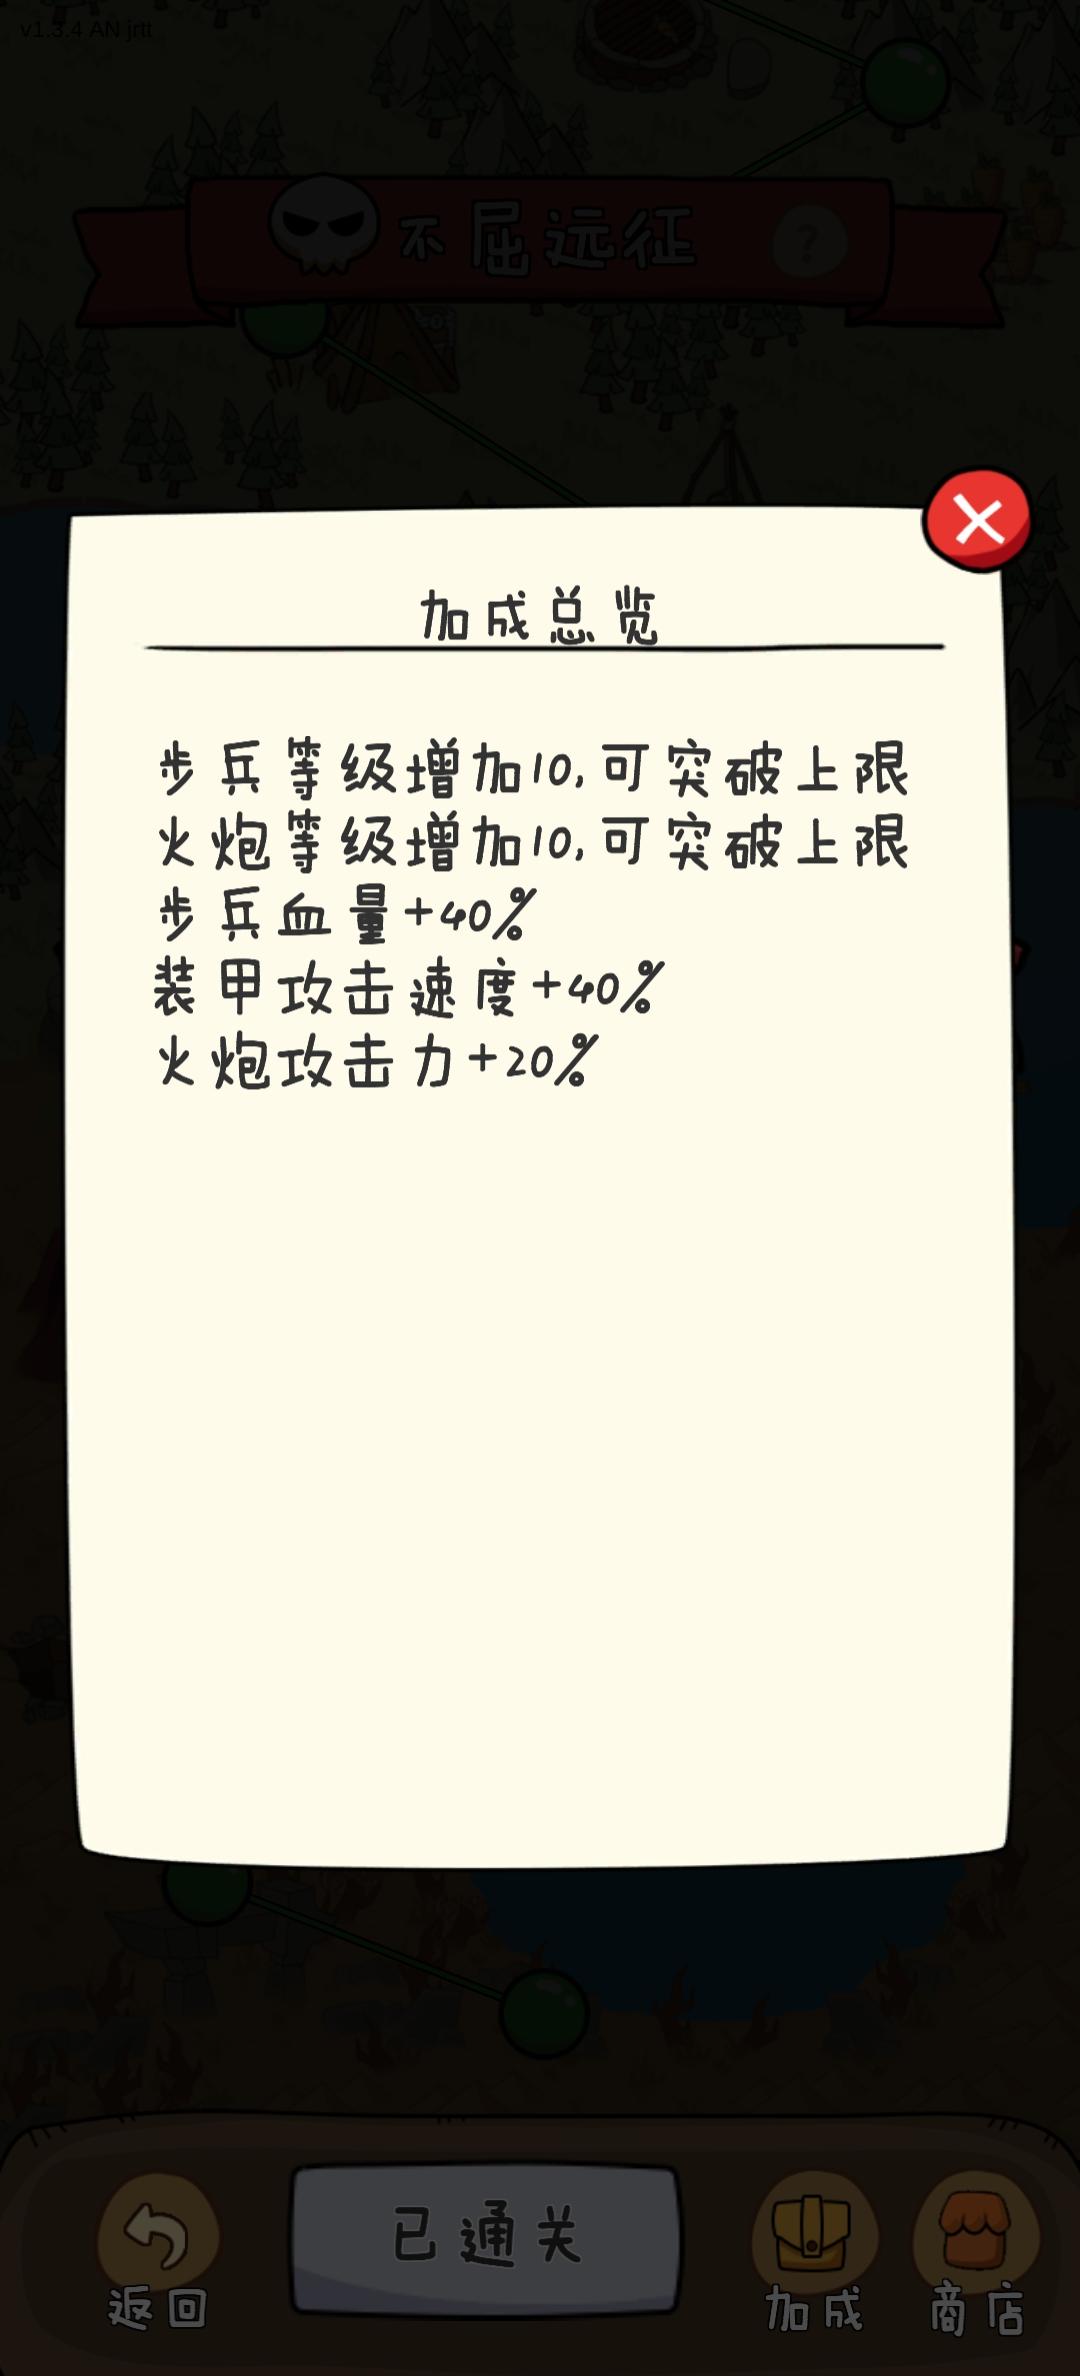 v1.3.4 AN jrtt
不屈远征
?
加成总览
步兵等级增加10,可突破上限
火炮等级增加10,可突破上限
步兵血量+40%
装甲攻击速度+40%
火炮攻击力+20%
已通关
返回
加成
商店